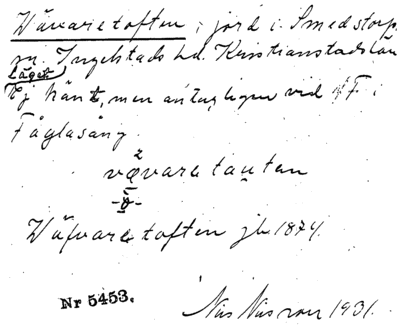 Wävaretoften, jord i Smedstorp
sn. Ingelstads hd. Kristianstads län
Läget
Ej känt, men antagligen vid № F i
Fåglasång.
vøvaratauten
Wäfvaretoften jb 1874.
Nr 5453.
Nils Nilsson 1931.